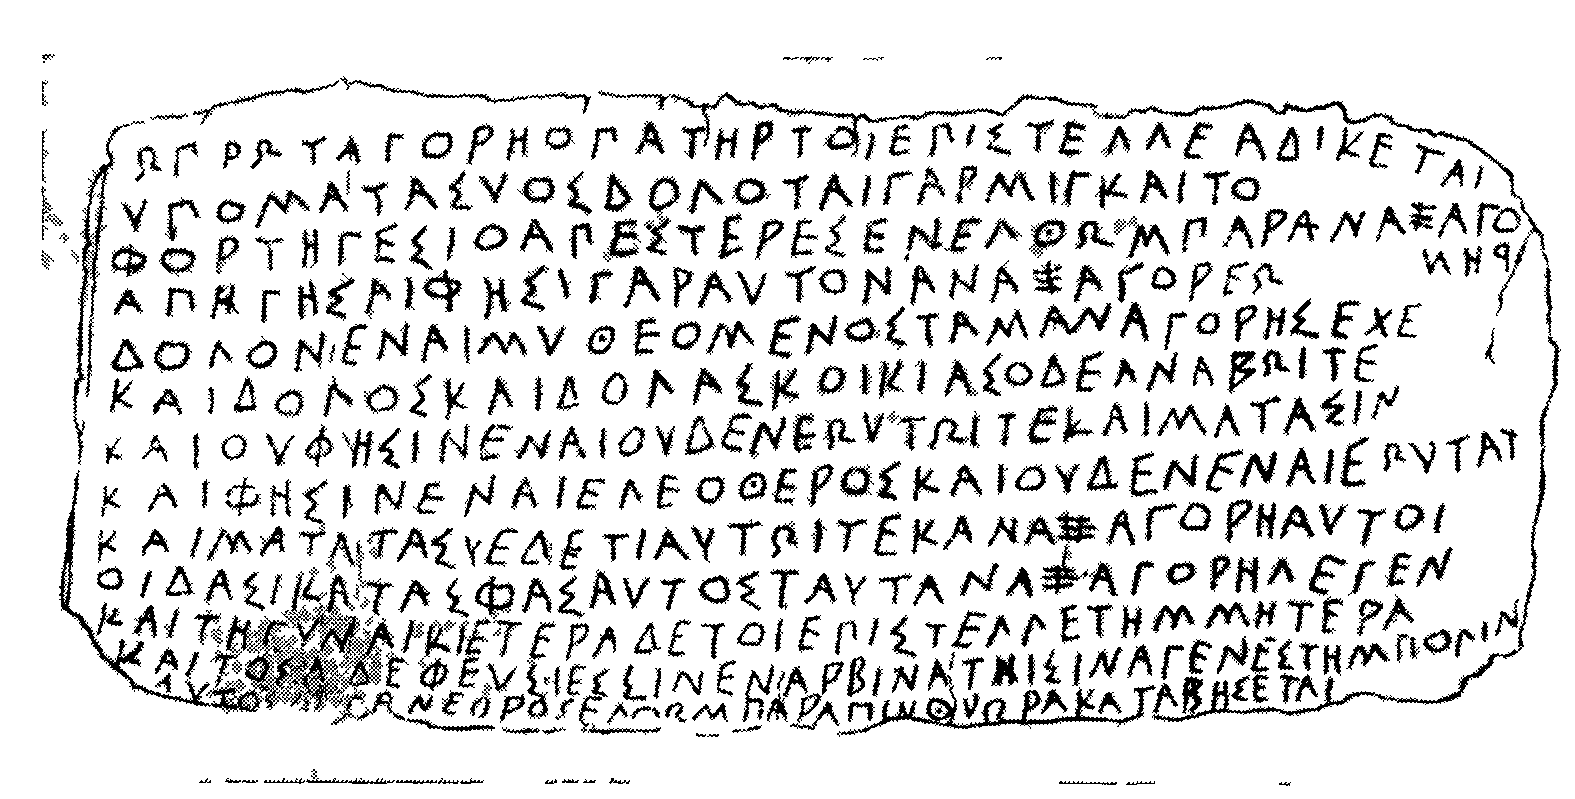 ΩΠΡΩΤΑΓΟΡΗΟΠΑΤΗΡΤΟΙΕΠΙΣΤΕΛΛΕΑΔΙΚΕΤΑΙ
ΥΠΟΜΑΤΑΣΥΟΣΔΟΛΟΤΑΙΓΑΡΜΙΓΚΑΙΤΟ
ΦΟΡΤΗΓΕΣΙΟΑΠΕΣΤΕΡΕΣΕΝΕΛΘΩΜΠΑΡΑΝΑΞΑΓΟ
ΡΗΝ
ΑΠΗΓΗΣΑΙΦΗΣΙΓΑΡΑΥΤΟΝΑΝΑΞΑΓΟΡΕΩ
ΔΟΛΟΝΕΝΑΙΜΥΘΕΟΜΕΝΟΣΤΑΜΑΝΑΓΟΡΗΣΕΧΕ
ΚΑΙΔΟΛΟΣΚΑΙΔΟΛΑΣΚΟΙΚΙΑΣΟΔΕΑΝΑΒΩΙΤΕ
ΚΑΙΟΥΦΗΣΙΝΕΝΑΙΟΥΔΕΝΕΩΥΤΩΙΤΕΚΑΙΜΑΤΑΣΙΝ
ΚΑΙΦΗΣΙΝΕΝΑΙΕΛΕΟΘΕΡΟΣΚΑΙΟΥΔΕΝΕΝΑΙΕΩΥΤΑΤ
ΚΑΙΜΑΤΑΤΑΣΥΕΔΕΤΙΑΥΤΩΙΤΕΚΑΝΑΞΑΓΟΡΗΑΥΤΟΙ
ΟΙΔΑΣΙΚΑΤΑΣΦΑΣΑΥΤΟΣΤΑΥΤΑΝΑΞΑΓΟΡΗΛΕΓΕΝ
ΚΑΙΤΗΓΥΝΑΙΚΙΕΤΕΡΑΔΕΤΟΙΕΠΙΣΤΕΛΛΕΤΗΜΜΗΤΕΡΑ
ΚΑΙΤΟΣΑΔΕΦΕΥΣΙΕΣΣΙΝΕΝΑΡΒΙΝΑΤΗΙΣΙΝΑΓΕΝΕΣΤΗΜΠΟΛΙΝ
ΝΕΟΡΟΣΕΛΘΩΜΠΑΡΑΜΙΝΘΥΩΡΑΚΑΤΑΒΗΣΕΤΑΙ